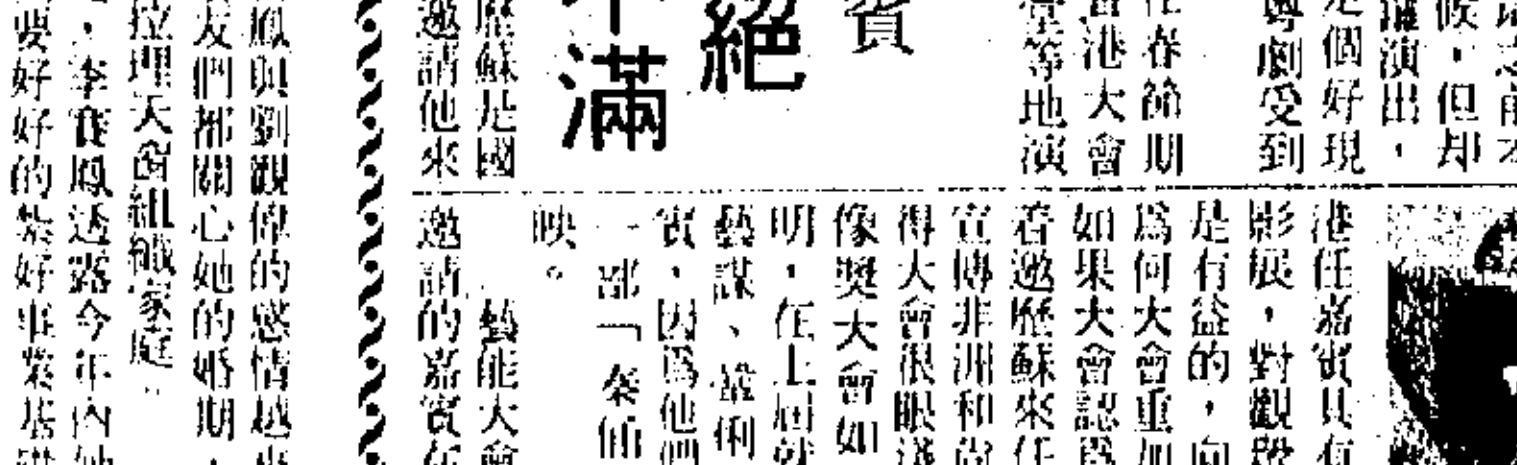 之前不
候，但却
躍演出，
是個好現
粵劇受到
在春節期
港大會
堂等地演
賓
絕
滿
歷蘇是國
邀請他來
港任嘉賓具有
影展，對觀眾
是有益的，向
爲何大會重加
如果大會認爲
邀歷蘇來任
宣傳非洲和尚
得大會很眼淺
像奬大會如
明，在上屆就
藝謀、鞏俐
賓，因爲他們
一部「秦俑
映。
藝能大會
邀請的嘉賓在
鳳與劉觀偉的感情越來
友們都關心她的婚期，
拉理天窗組織家庭
，李賽鳳透露今年內她
要好好的紮好事業基礎